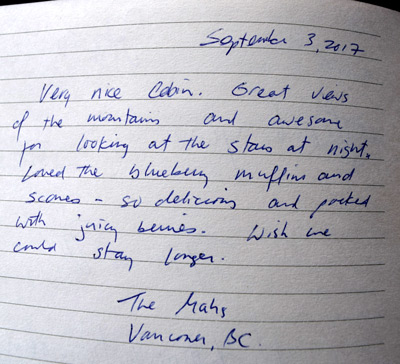 September 3, 2017
Very nice Cabin. Great views
of the mountains and awesome
for looking at the stars at night.
Loved the blueberry muffins and
scones - so delicious and packed
with juicy berries. Wish we
could stay longer.
The Mahs
Vancouver, BC.